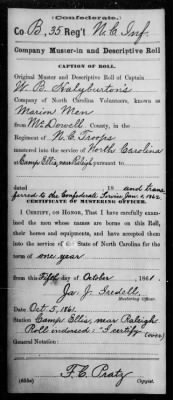 (Confederate.)
Co B, 35 Reg't N.C. Inf.
Company Muster-in and Descriptive Roll
CAPTION OF ROLL.
Original Muster and Descriptive Roll of Captain
W. B. Halyburton's
Company of North Carolina Volunteers, known as
Marion Men
from McDowell County, in the
Regiment of N.C. Troops
mustered into the service of North Carolina
Camp Ellis, near Raleigh pursuant to
dated 18 and trans
ferred to the Confederate Service, 1862.
CERTIFICATE OF MUSTERING OFFICER.
I CERTIFY, ON HONOR, That I have carefully examined
the men whose names are borne on this Roll,
their horses and equipments, and have accepted them
into the service of the State of North Carolina for the
term of one year
from this Fifth day of October 1861.
Ja. J. Iredell,
Mustering Officer.
Date Oct. 5, 1861.
Station Camp Ellis, near Raleigh
Roll indorsed: "I certify (over)
General Notation:
F. C. Pratz
Copyist.